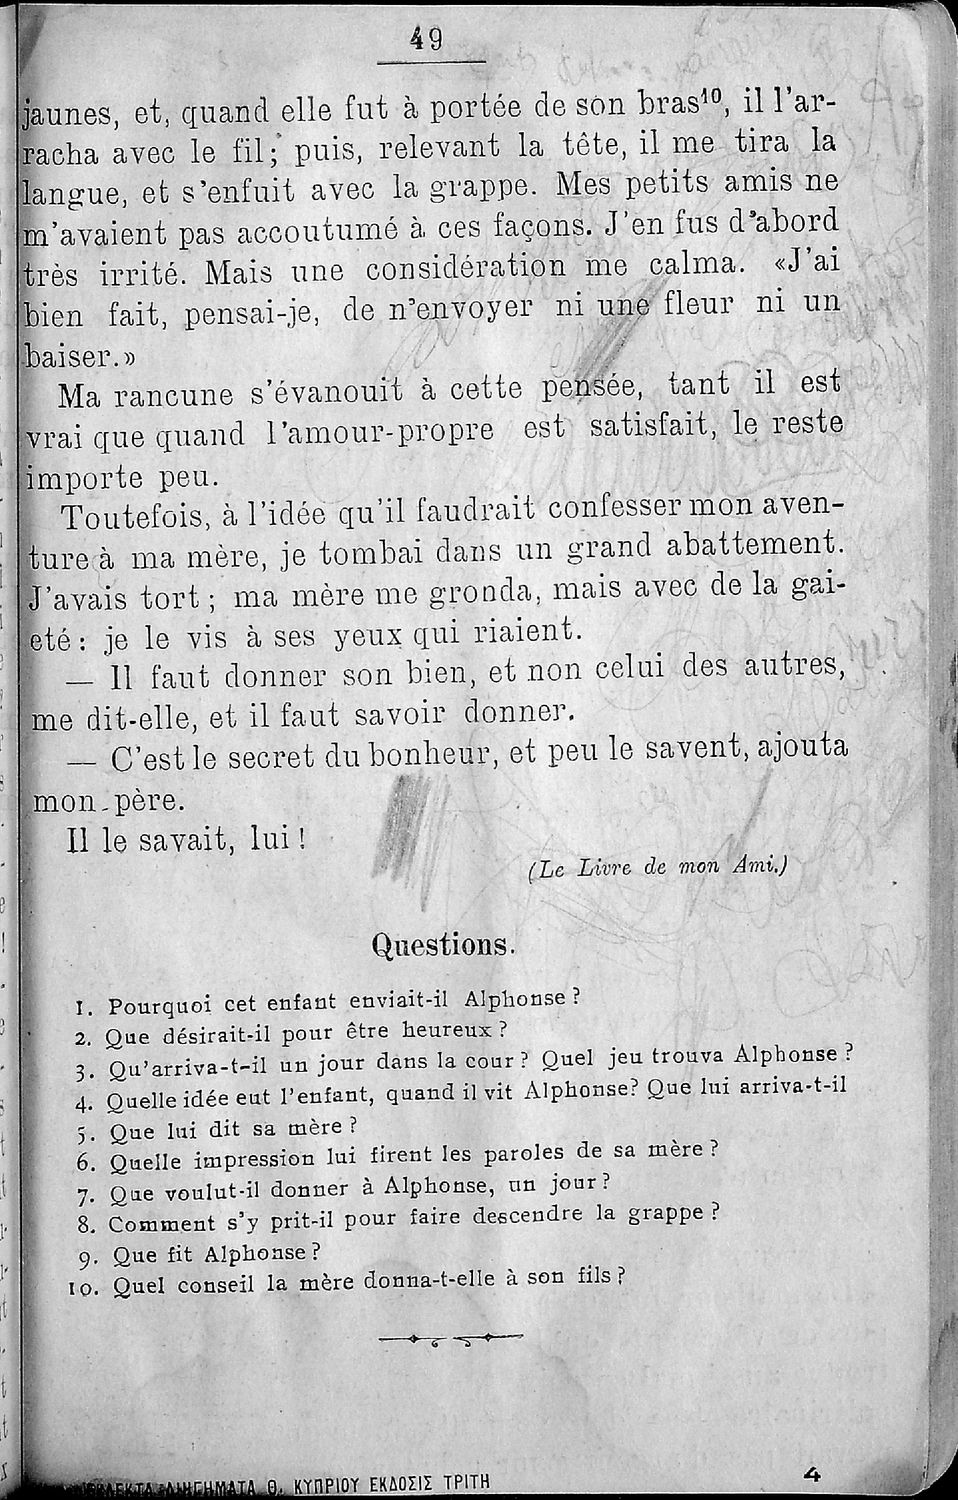 49
jaunes, et, quand elle fut à portée de son bras¹⁰, il l'ar-
racha avec le fil; puis, relevant la tête, il me tira la
langue, et s'enfuit avec la grappe. Mes petits amis ne
m'avaient pas accoutumé à ces façons. J'en fus d'abord
très irrité. Mais une considération me calma. «J'ai
bien fait, pensai-je, de n'envoyer ni une fleur ni un
baiser.»
Ma rancune s'évanouit à cette pensée, tant il est
vrai que quand l'amour-propre est satisfait, le reste
importe peu.
Toutefois, à l'idée qu'il faudrait confesser mon aven-
ture à ma mère, je tombai dans un grand abattement.
J'avais tort; ma mère me gronda, mais avec de la gai-
eté: je le vis à ses yeux qui riaient.
— Il faut donner son bien, et non celui des autres,
me dit-elle, et il faut savoir donner.
— C'est le secret du bonheur, et peu le savent, ajouta
mon père.
Il le savait, lui!
(Le Livre de mon Ami.)
Questions.
1. Pourquoi cet enfant enviait-il Alphonse?
2. Que désirait-il pour être heureux?
3. Qu'arriva-t-il un jour dans la cour? Quel jeu trouva Alphonse?
4. Quelle idée eut l'enfant, quand il vit Alphonse? Que lui arriva-t-il
5. Que lui dit sa mère?
6. Quelle impression lui firent les paroles de sa mère?
7. Que voulut-il donner à Alphonse, un jour?
8. Comment s'y prit-il pour faire descendre la grappe?
9. Que fit Alphonse?
10. Quel conseil la mère donna-t-elle à son fils?
Θ. ΚΥΠΡΙΟΥ ΕΚΔΟΣΙΣ ΤΡΙΤΗ 4